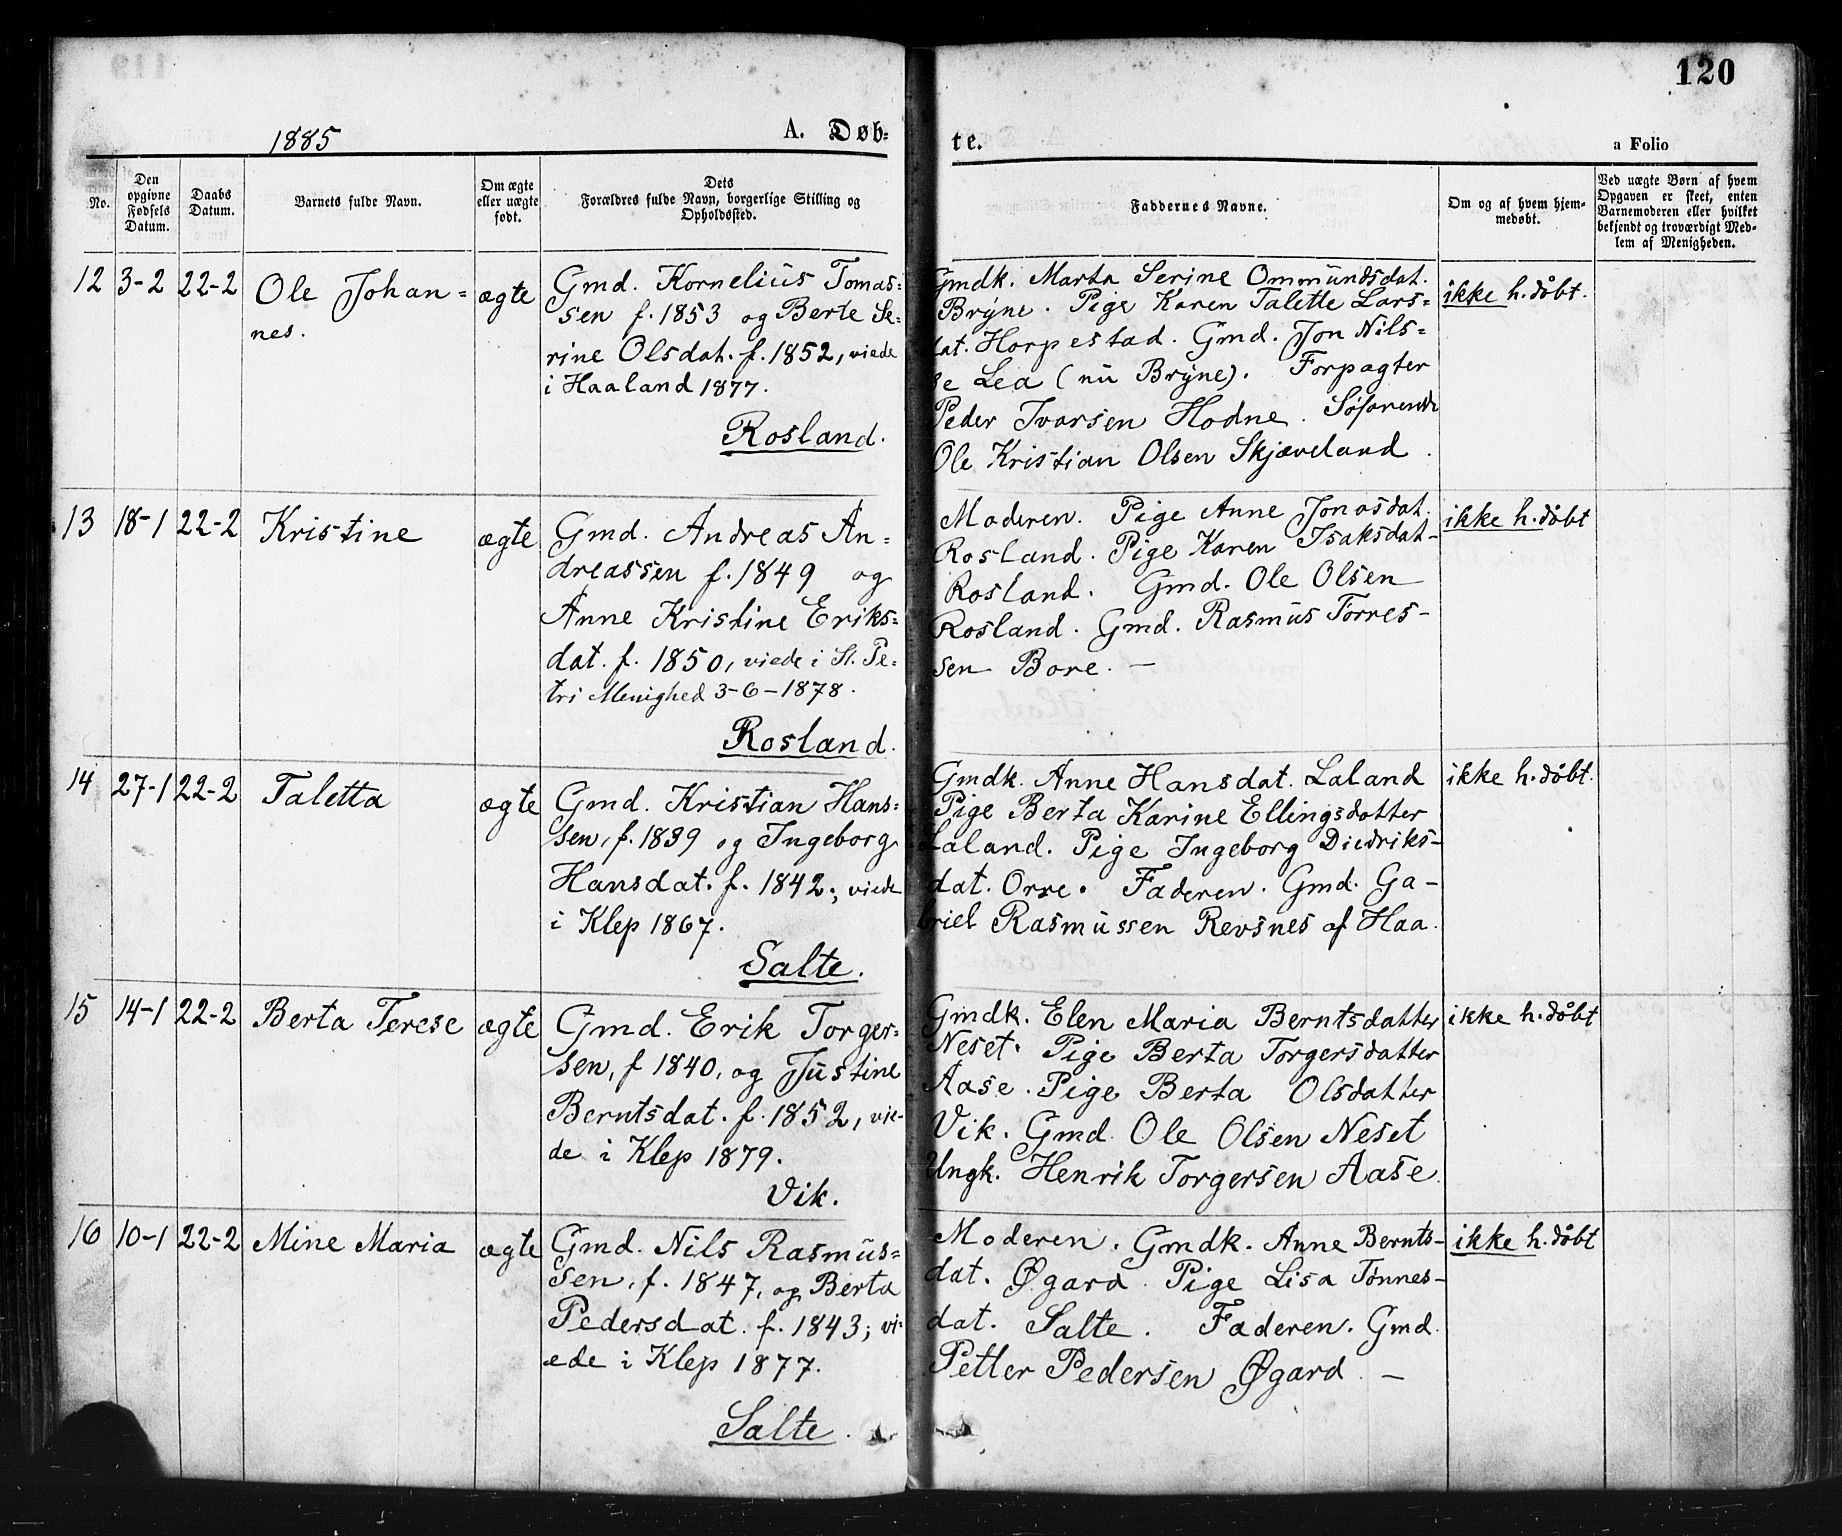 120
1885
A. Døb-
te.
a Folio
No.
Den
opgivne
Fødsels
Datum.
Daabs
Datum.
Barnets fulde Navn.
Om ægte
eller uægte
født.
Dets
Forældres fulde Navn, borgerlige Stilling og
Opholdssted.
Faddernes Navne.
Om og af hvem hjem-
medøbt.
Ved uægte Børn af hvem
Opgaven er skeet, enten
Barnemoderen eller hvilket
bekjendt og troværdigt Med-
lem af Menigheden.
12
3-2
22-2
Ole Johan=
nes.
ægte
Gmd. Kornelius Tomas=
sen f. 1853 og Berte Se-
rine Olsdat. f. 1852, viede
i Haaland 1877.
Rosland.
Gmdk. Marta Serine Ommundsdat.
Bryne. Pige Karen Talette Lars=
dat. Horpestad. Gmd. Jon Nils=
se Lea (nu Bryne). Forpagter
Peder Ivarsen Hodne. Søfarende
Ole Kristian Olsen Skjæveland.
ikke h.døbt.
13
18-1
22-2
Kristine
ægte
Gmd. Andreas An=
dreassen f. 1849 og
Anne Kristine Eriks=
dat. f. 1850, viede i St. Pe=
tri Menighed 3-6-1878.
Rosland.
Moderen. Pige Anne Jonasdat.
Rosland. Pige Karen Isaksdat-
Rosland. Gmd. Ole Olsen
Rosland. Gmd. Rasmus Torres-
sen Bore. —
ikke h.døbt
14
27-1
22-2
Taletta
ægte
Gmd. Kristian Hans=
sen, f. 1839 og Ingeborg
Hansdat. f. 1842; viede
i Klep 1867.
Salte.
Gmdk. Anne Hansdat. Laland
Pige Berta Karine Ellingsdatter
Laland. Pige Ingeborg Diedriks-
dat. Orre. Faderen. Gmd. Ga-
briel Rasmussen Revsnes af Haa.
ikke h.døbt.
15
14-1
22-2
Berta Terese
ægte
Gmd. Erik Torger=
sen, f 1840, og Justine
Berntsdat. f. 1852, vie-
de i Klep 1879.
Vik.
Gmdk. Elen Maria Berntsdatter
Neset. Pige Berta Torgersdatter
Aase. Pige Berta Olsdatter
Vik. Gmd. Ole Olsen Neset
Ungk. Henrik Torgersen Aase
ikke h.døbt
16
10-1
22-2
Mine Maria
ægte
Gmd. Nils Rasmus=
sen, f. 1847, og Berta
Pedersdat. f. 1843; vi-
ede i Klep 1877.
Salte.
Moderen. Gmdk. Anne Bernts-
dat. Øgard. Pige Lisa Tønnes-
dat. Salte. Faderen. Gmd.
Petter Pedersen Øgard. —
ikke h.døbt